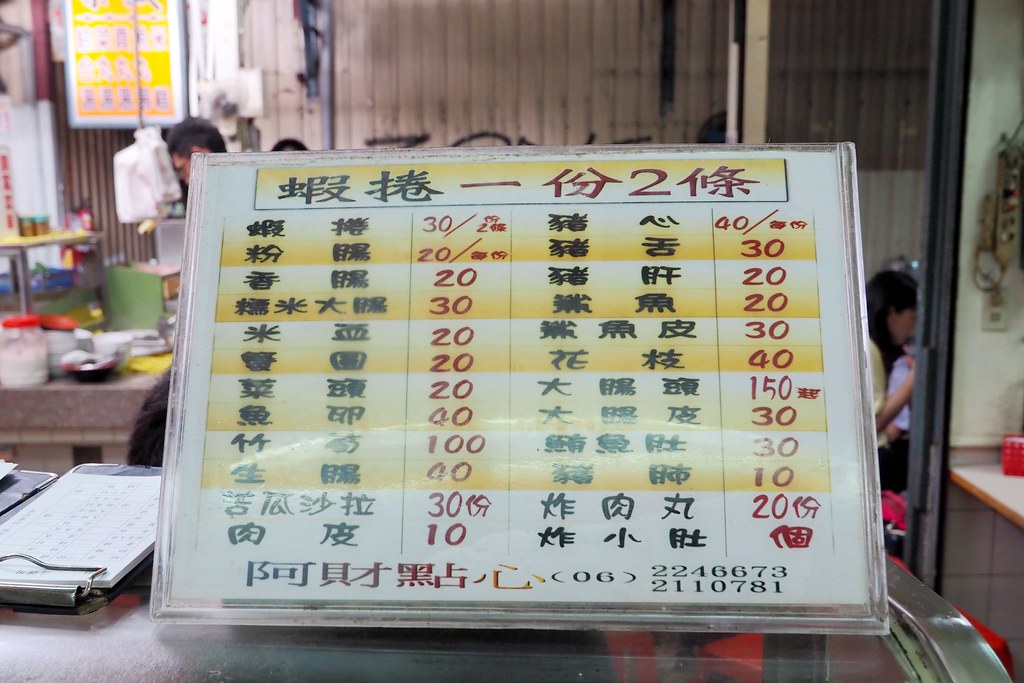 蝦捲一份2條
蝦捲 30/份2條 豬心 40/每份
粉腸 20/每份 豬舌 30
香腸 20 豬肝 20
糯米大腸 30 鯊魚 20
米血 20 鯊魚皮 30
蟹圓 20 花枝 40
菜頭 20 大腸頭 150起
魚卵 40 大腸皮 30
竹筍 100 鮪魚肚 30
生腸 40 豬肺 10
苦瓜沙拉 30份 炸肉丸 20份
肉皮 10 炸小肚 個
阿財點心 (06) 2246673
2110781